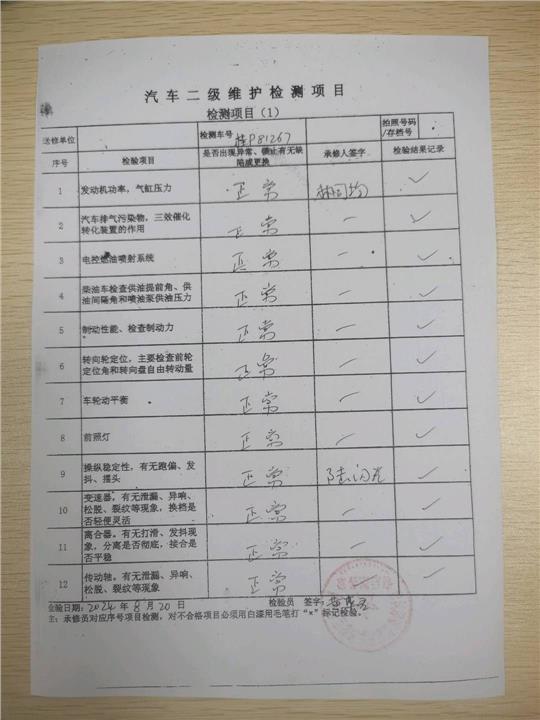 汽车二级维护检测项目
检测项目（1）
送修单位 检测车号 桂P81267 拍照号码/存档号
序号 检验项目 是否出现异常、锁止有无缺陷或更换 承修人签字 检验结果记录
1 发动机功率，气缸压力 正常 ✓
2 汽车排气污染物，三效催化转化装置的作用 正常 — ✓
3 电控燃油喷射系统 正常 — ✓
4 柴油车检查供油提前角、供油间隔角和喷油泵供油压力 正常 — ✓
5 制动性能、检查制动力 正常 — ✓
6 转向轮定位，主要检查前轮定位角和转向盘自由转动量 正常 — ✓
7 车轮动平衡 正常 — ✓
8 前照灯 正常 — ✓
9 操纵稳定性，有无跑偏、发抖、摆头 正常 ✓
10 变速器，有无泄漏、异响、松脱、裂纹等现象，换档是否轻便灵活 正常 — ✓
11 离合器，有无打滑、发抖现象，分离是否彻底，接合是否平稳 正常 — ✓
12 传动轴，有无泄漏、异响、松脱、裂纹等现象 正常 ✓
检验日期：2024年8月20日 检验员 签字：
注：承修员对应序号项目检测，对不合格项目必须用白漆用毛笔打“×”标记检验。